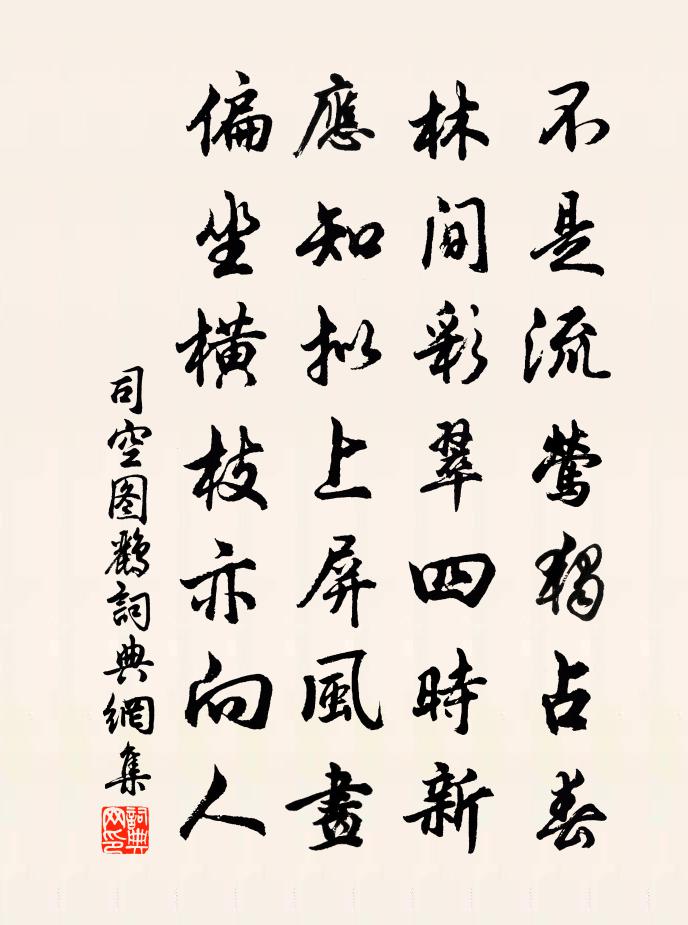 不是流鶯獨占春
林間彩翠四時新
應知擬上屏風畫
偏坐橫枝亦向人
司空图鸝詞典網集
詞典網印